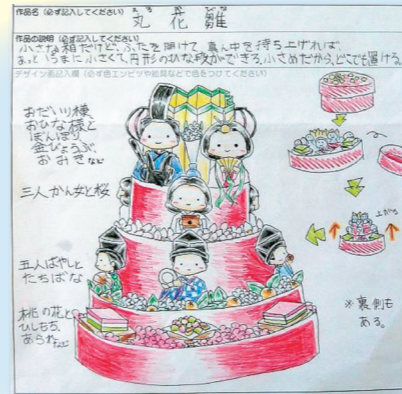 作品名(必ず記入してください)
まる か びな
丸 花 雛
作品の説明(必ず記入してください)
小さな箱だけど、ふたを開けて、真ん中を持ち上げれば、
あっというまに小さくて、円形のひな段ができる。小さめだから、どこでも置ける。
デザイン画記入欄(必ず色エンピツや絵具などで色をつけてください)
おだいり様
おひな様と
ぼんぼり
金びょうぶ
おみきなど
三人かん女と桜
五人ばやしと
たちばな
桃の花と
ひしもち、
あられなど
上がる
※裏側も
ある。